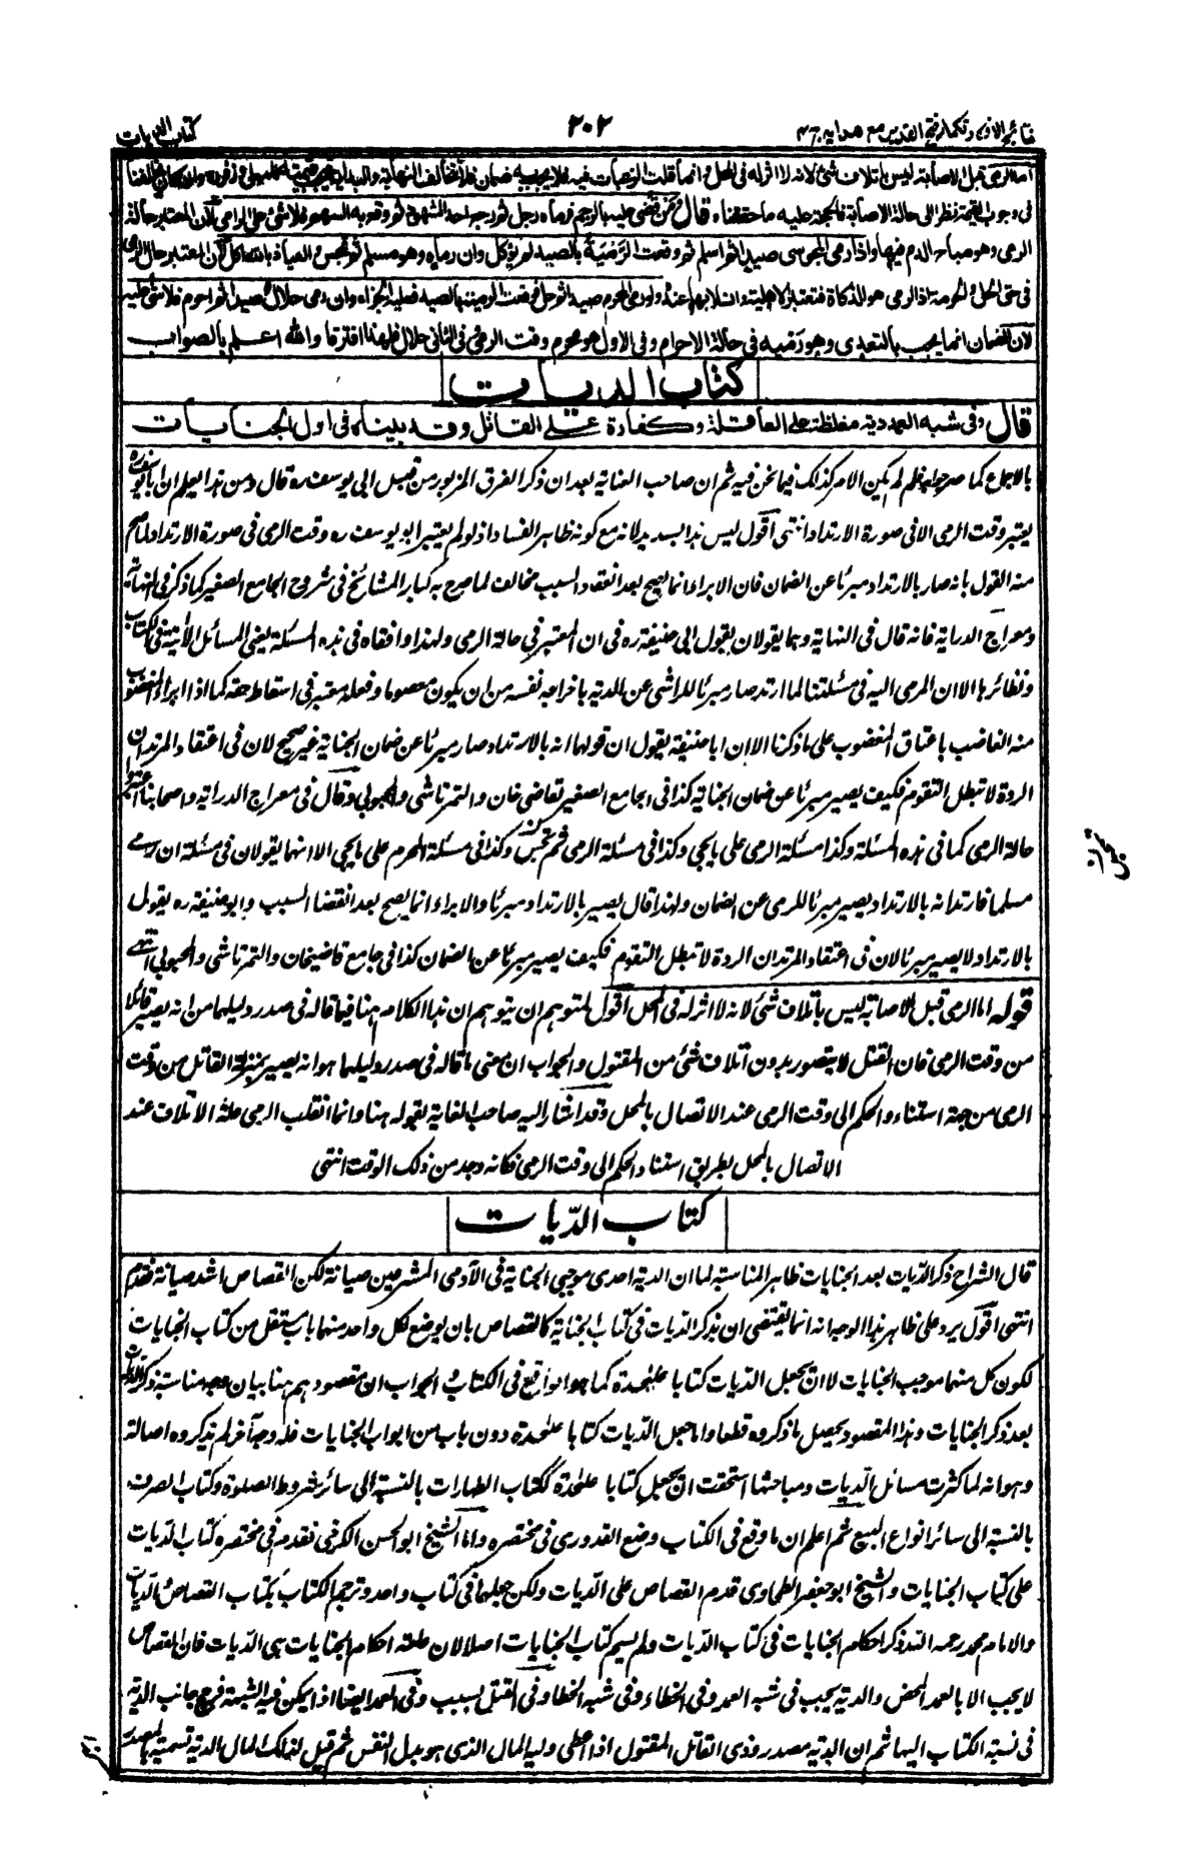 نتائج الافكار تكملہ فتح القدیر مع هدایہ ج ۴
۲۰۲
كتاب الديات
اما الرمى قبل الاصابة ليس باتلاف شئ لانه لا اثر له فى المحل وانما قلت الرغبات فيه فلا يجب به ضمان فلا
فى وجوب القيمة نظرا الى حالة الاصابة فالحجة عليه ما حققناه قال ومن قضى عليه بالرجم فرماه رجل ثم رجع احد الشهود ثم وقع به السهم فلا شئ على الرامى لان المعتبر حالة
الرمى وهو مباح الدم فيها واذا رمى المجوسى صيدا ثم اسلم ثم وقعت الرمية بالصيد لم يؤكل وان رماه وهو مسلم ثم تمجس والعياذ بالله اكل لان المعتبر حال الرمى
فى حق الحل والحرمة اذ الرمى هو الذكاة فتعتبر الاهلية وانسلابها عنده ولو رمى المحرم صيدا ثم حل فوقعت الرمية بالصيد فعليه الجزاء وان رمى حلال صيدا ثم احرم فلا شئ عليه
لان الضمان انما يجب بالتعدى وهو رميه فى حالة الاحرام وفى الاول هو محرم وقت الرمى وفى الثانى حلال فلهذا افترقا والله اعلم بالصواب
كتاب الديات
قال وفى شبه العمد دية مغلظة على العاقلة وكفارة على القاتل وقد بيناه فى اول الجنايات
بالاجماع كما صرحوا به فلم لم يكن الامر كذلك فيما نحن فيه ثم ان صاحب العناية بعد ان ذكر الفرق المزبور من قبل ابى يوسف ره قال ومن هذا يعلم ان ابا يوسف ره
يعتبر وقت الرمى الا فى صورة الارتداد انتهى اقول ليس هذا بسديد لانه مع كونه ظاهر الفساد اذ لو لم يعتبر ابو يوسف ره وقت الرمى فى صورة الارتداد لما صح
منه القول بانه صار بالارتداد مبرئا عن الضمان فان الابراء انما يصح بعد انعقاد السبب مخالف لما صرح به كبار المشائخ فى شروح الجامع الصغير كما ذكر فى النهاية
ومعراج الدراية فانه قال فى النهاية وهما يقولان بقول ابى حنيفة ره فى ان المعتبر فى حالة الرمى ولهذا وافقاه فى هذه المسئلة يعنى المسائل الآتية فى الكتاب
ونظائرها الا ان المرمى اليه فى مسئلتنا لما ارتد صار مبرئا للرامى عن الدية باخراجه نفسه من ان يكون معصوما وفعله معتبر فى اسقاط حقه كما اذا ابرأ المغصوب
منه الغاصب باعتاق المغصوب على ما ذكرنا الا ان ابا حنيفة يقول ان قولهما انه بالارتداد صار مبرئا عن ضمان الجناية غير صحيح لان فى اعتقاد المرتد ان
الردة لا تبطل التقوم فكيف يصير مبرئا عن ضمان الجناية كذا فى الجامع الصغير لقاضى خان والتمرتاشى والمحبوبى وقال فى معراج الدراية واصحابنا اعتبروا
حالة الرمى كما فى هذه المسئلة وكذا مسئلة الرمى على ما يجئ وكذا فى مسئلة الرمى ثم تمجس وكذا فى مسئلة المحرم على ما يجئ الا انهما يقولان فى مسئلة ان رمى
مسلما فارتد انه بالارتداد يصير مبرئا للرمى عن الضمان ولهذا قال يصير بالارتداد مبرئا والابراء انما يصح بعد انعقاد السبب وابو حنيفة ره يقول
بالارتداد لا يصير مبرئا لان فى اعتقاد المرتد ان الردة لا تبطل التقوم فكيف يصير مبرئا عن الضمان كذا فى جامع قاضيخان والتمرتاشى والمحبوبى انتهى
قوله اما الرمى قبل الاصابة ليس باتلاف شئ لانه لا اثر له فى المحل اقول لمتوهم ان يتوهم ان هذا الكلام هنا فيما قاله فى صدر دليلهما من انه يصير قاتلا
من وقت الرمى فان القتل لا يتصور بدون اتلاف شئ من المقتول والجواب ان معنى ما قاله فى صدر دليلهما هو انه يصير بمنزلة القاتل من وقت
الرمى من جهة استناد الحكم الى وقت الرمى عند الاتصال بالمحل وقد اشار اليه صاحب الغاية بقوله هنا وانما انقلب الرمى علة الاتلاف عند
الاتصال بالمحل بطريق استناد الحكم الى وقت الرمى فكانه وجد من ذلك الوقت انتهى
كتاب الدّيات
قال الشراح ذكر الديات بعد الجنايات ظاهر المناسبة لما ان الدية احدى موجبى الجناية فى الآدمى المشرعين صيانة لكن القصاص اشد صيانة فقدم
انتهى اقول يرد على ظاهر هذا الوجه انه انما يقتضى ان يذكر الديات فى كتاب الجناية كالقصاص بان يوضع لكل واحد منهما باب مستقل من كتاب الجنايات
لكون كل منهما موجب الجنايات لا ان يجعل الديات كتابا علىحدة كما هو الواقع فى الكتاب والجواب ان مقصودهم هنا بيان وجه مناسبة ذكر الديات
بعد ذكر الجنايات وهذا المقصود يحصل بما ذكروه قطعا واما جعل الديات كتابا علىحدة دون باب من ابواب الجنايات فله وجه آخر لم يذكروه اصالة
وهو انه لما كثرت مسائل الديات ومباحثها استحقت ان تجعل كتابا علىحدة ككتاب الطهارات بالنسبة الى سائر شروط الصلوة وكتاب الصرف
بالنسبة الى سائر انواع البيع ثم اعلم ان ما وقع فى الكتاب وضع القدورى فى مختصره واما الشيخ ابو الحسن الكرخى فقدم فى مختصره كتاب الديات
على كتاب الجنايات والشيخ ابو جعفر الطحاوى قدم القصاص على الديات ولكن جعلهما فى كتاب واحد وترجم الكتاب بكتاب القصاص والديات
والامام محمد رحمه الله ذكر احكام الجنايات فى كتاب الديات ولم يسم كتاب الجنايات اصلا لان عامة احكام الجنايات هى الديات فان القصاص
لا يجب الا بالعمد المحض والدية يجب فى شبه العمد وفى الخطاء وفى شبه الخطا وفى القتل بسبب وفى العمد ايضا اذا تمكن فيه الشبهة فرجح جانب الدية
فى نسبة الكتاب اليها ثم ان الدية مصدر ودى القاتل المقتول اذا اعطى وليه المال الذى هو بدل النفس ثم قيل لذلك المال الدية تسمية بالمصدر